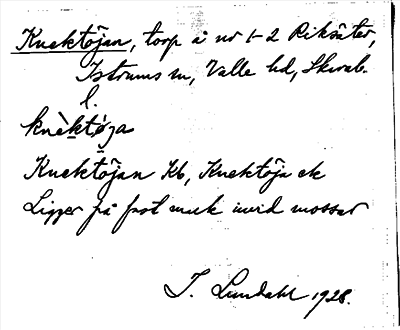 Knektöjan, torp å nr 1-2 Riksäter,
Istrums sn, Valle hd, Skarab.
l.
knèktø̀ja
Knektöjan Kb, Knektöja ek
Ligger på frost mark invid mossar
I. Lundahl 1928.